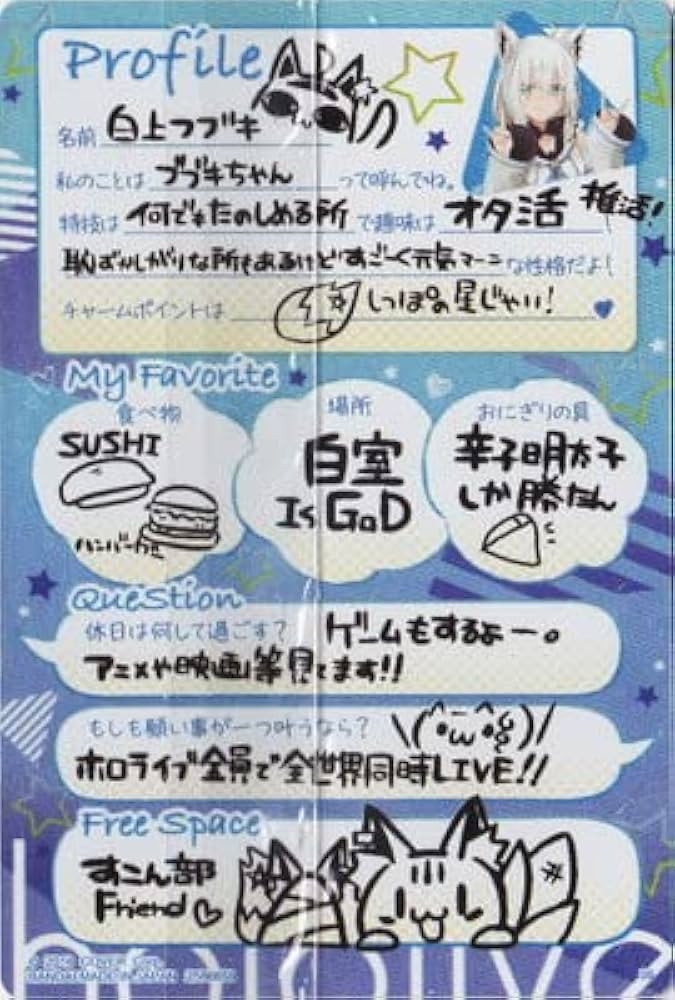 Profile
名前 白上フブキ
私のことは フブキちゃん って呼んでね。
特技は 何でもたのしめる所 で趣味は オタ活 推活!
恥ずかしがりな所もあるけどすごーく元気マーニ な性格だよ!
チャームポイントは しっぽの星じゃい!
My Favorite
食べ物
SUSHI
場所
白室
Is GoD
おにぎりの具
辛子明太子
しか勝たん
Question
休日は何して過ごす? ゲームもするよー。
アニメや映画等見てます!!
もしも願い事が一つ叶うなら? \(^•ω•^)/
ホロライブ全員で全世界同時LIVE!!
Free Space
すこん部
Friend ♡
hololive